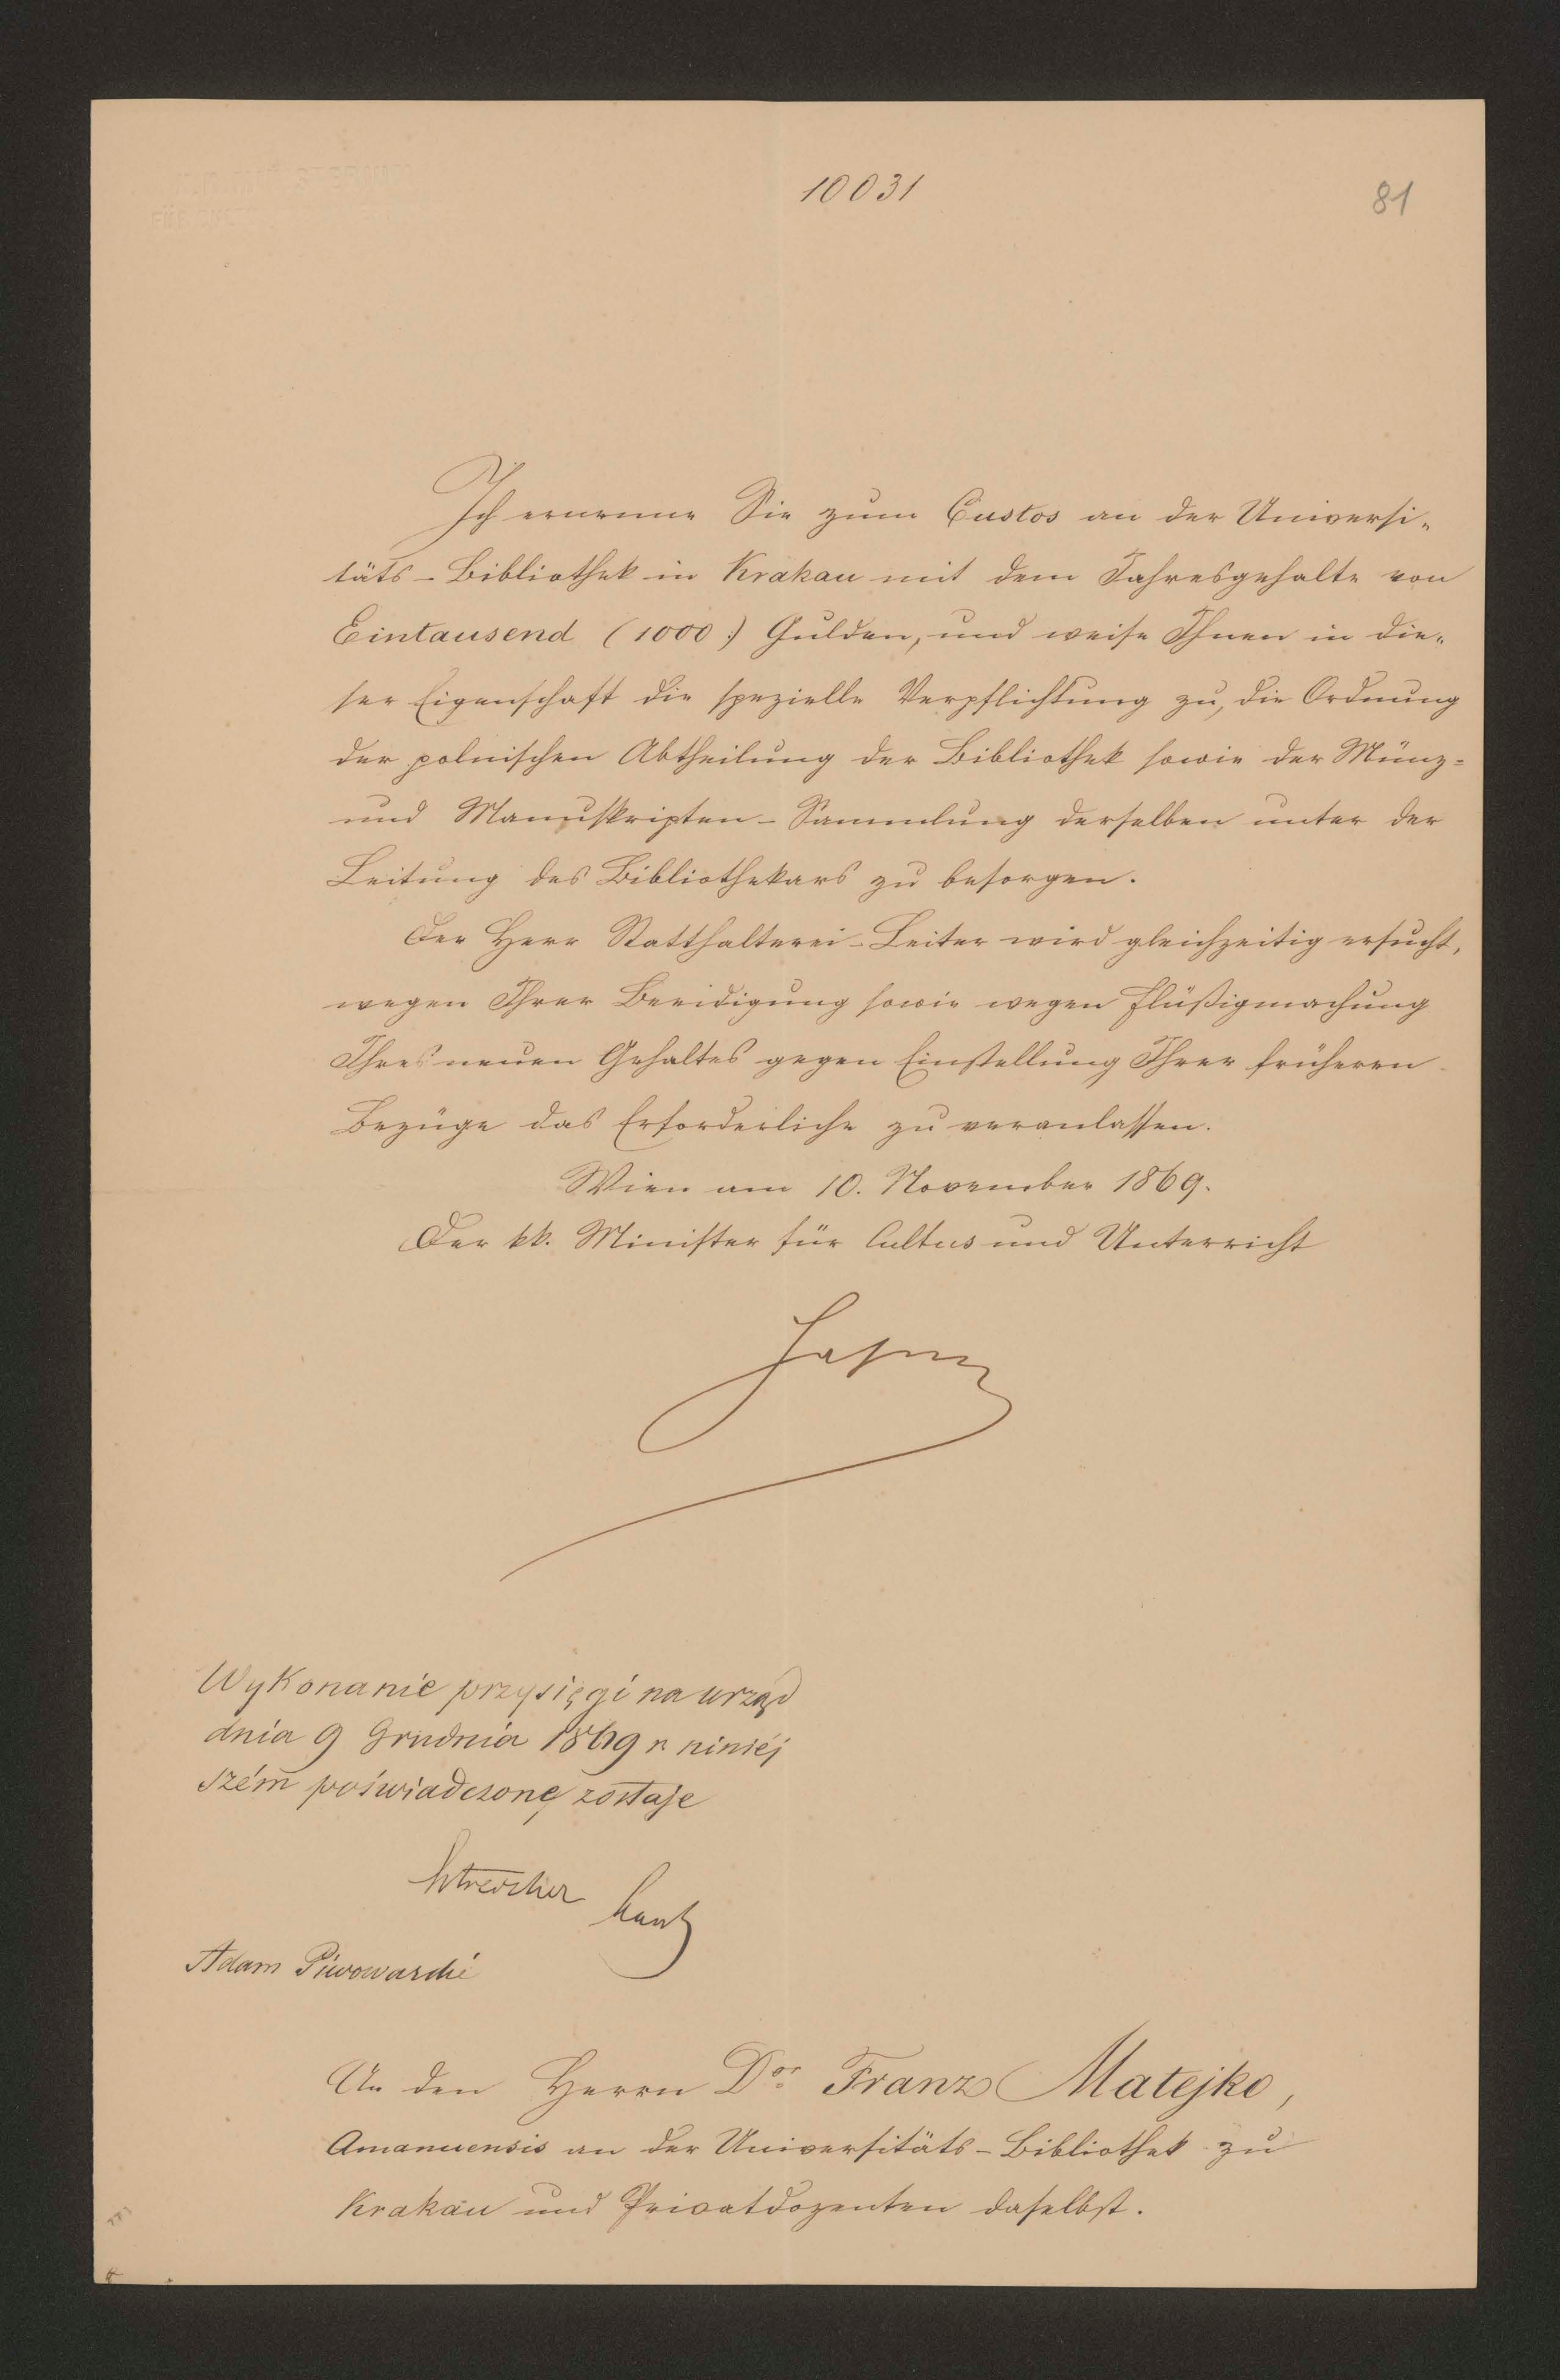 10031
81
Ich ernenne Sie zum Custos an der Universi-
täts-Bibliothek in Krakau mit dem Jahresgehalte von
Eintausend (1000) Gulden, und weise Ihnen in die-
ser Eigenschaft die spezielle Verpflichtung zu, die Ordnung
der polnischen Abtheilung der Bibliothek sowie der Münz-
und Manuskripten-Sammlung derselben unter der
Leitung des Bibliothekars zu besorgen.
Der Herr Statthalterei-Leiter wird gleichzeitig ersucht,
wegen Ihrer Beeidigung sowie wegen Flüßigmachung
Ihres neuen Gehaltes gegen Einstellung Ihrer früheren
Bezüge das Erforderliche zu veranlassen.
Wien am 10. November 1869.
Der kk. Minister für Cultus und Unterricht
Hasner
Wykonanie przysięgi na urząd
dnia 9 Grudnia 1869 r niniéj
szém poświadczone zostaje
Estreicher
Adam Piwowarski
An den Herrn Dor. Franz Matejko,
Amanuensis an der Universitäts-Bibliothek zu
Krakau und Privatdozenten daselbst.